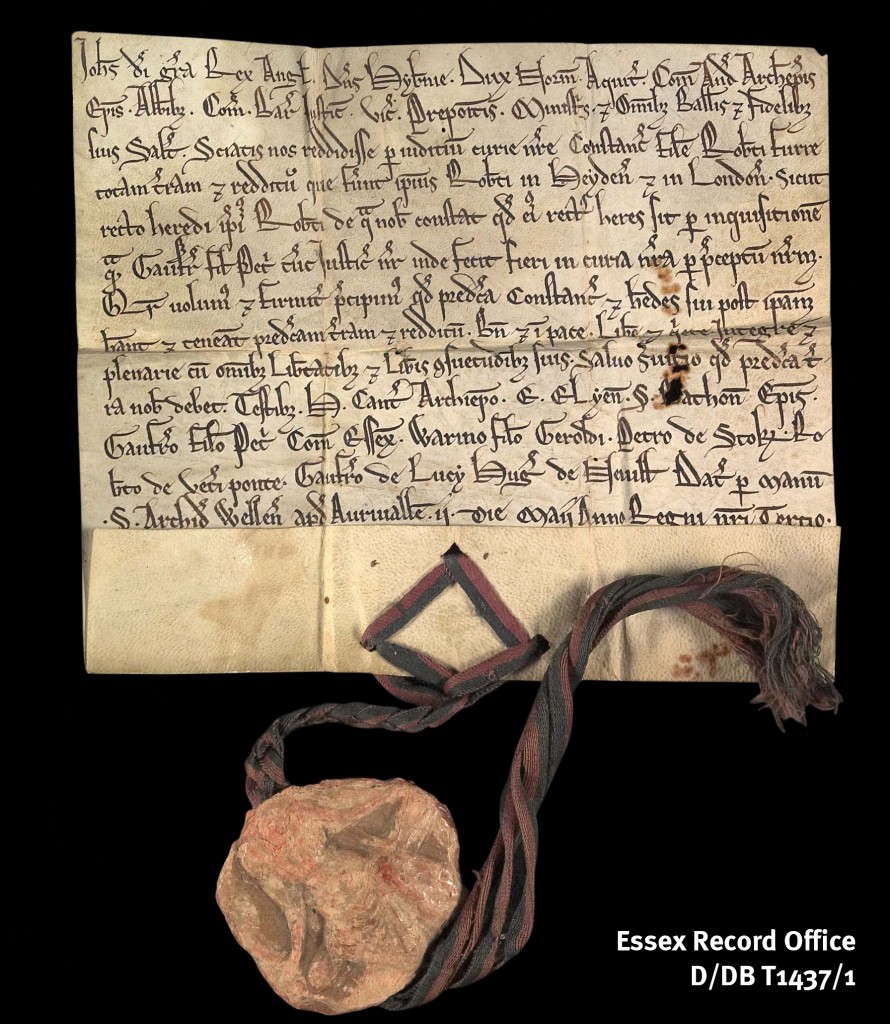 Joh̄s d̄i gr̄a Rex Angl̄. Dn̄s Hyb̄nie. Dux Norm̄. Aquit̄. Com̄ And̄ Archiep̄is
Ep̄is. Abb̄ibꝫ. Com̄. Bar̄ Justic̄. Vic̄. Prepositis. Ministr̄. ⁊ Om̄ibꝫ Ball̄is ⁊ Fidelibꝫ
suis Salt̄. Sciatis nos reddidisse ꝑ iuditiū curie nr̄e Constanc̄ filie Rob̄ti
totam t̄ram ⁊ redditū que fūnt ip̄ius Rob̄ti in Heyden̄ ⁊ in London̄. Sicut
recto heredi ip̄i Rob̄ti de q̄a nob̄ constat qd̄ ei rect̄ heres sit ꝑ inquisitionē
q̄ā Gaufr̄ fil̄ Pet̄ tūc Justic̄ nr̄ inde fecit fieri in curia nr̄a ꝑ p̄ceptū nr̄m.
Qr̄ volum̄ ⁊ firmit̄ p̄cipim̄ qd̄ pred̄c̄a Constanc̄ ⁊ h̄edes sui post ipam
h̄ant ⁊ teneāt pred̄cam t̄ram ⁊ redditū. Bn̄ ⁊ ī pace. Lib̄e ⁊ Integre ⁊
plenarie cū omībꝫ Lib̄tatibꝫ ⁊ Lib̄is ꝯsuetudībꝫ suis. Salvo s̄vitio qd̄ pred̄c̄a t̄-
ra nob̄ debet. Testibꝫ. H. Cant̄ Archiep̄o. E. Elyen̄. S. Bathon̄ Ep̄is.
Gaufr̄o filio Pet̄ Com̄ Essex̄. Warino fil̄o Geroldi. Petro de Stok̄. Ro-
b̄to de Vet̄i ponte. Gaufr̄o de Lucy Huḡ de Nevill̄ Dat̄ ꝑ manū
.S. Archid̄ Wellen̄ apd̄ Aurivall̄e. ii. Die Maii Anno Regni nr̄i Tertio.
Essex Record Office
D/DB T1437/1